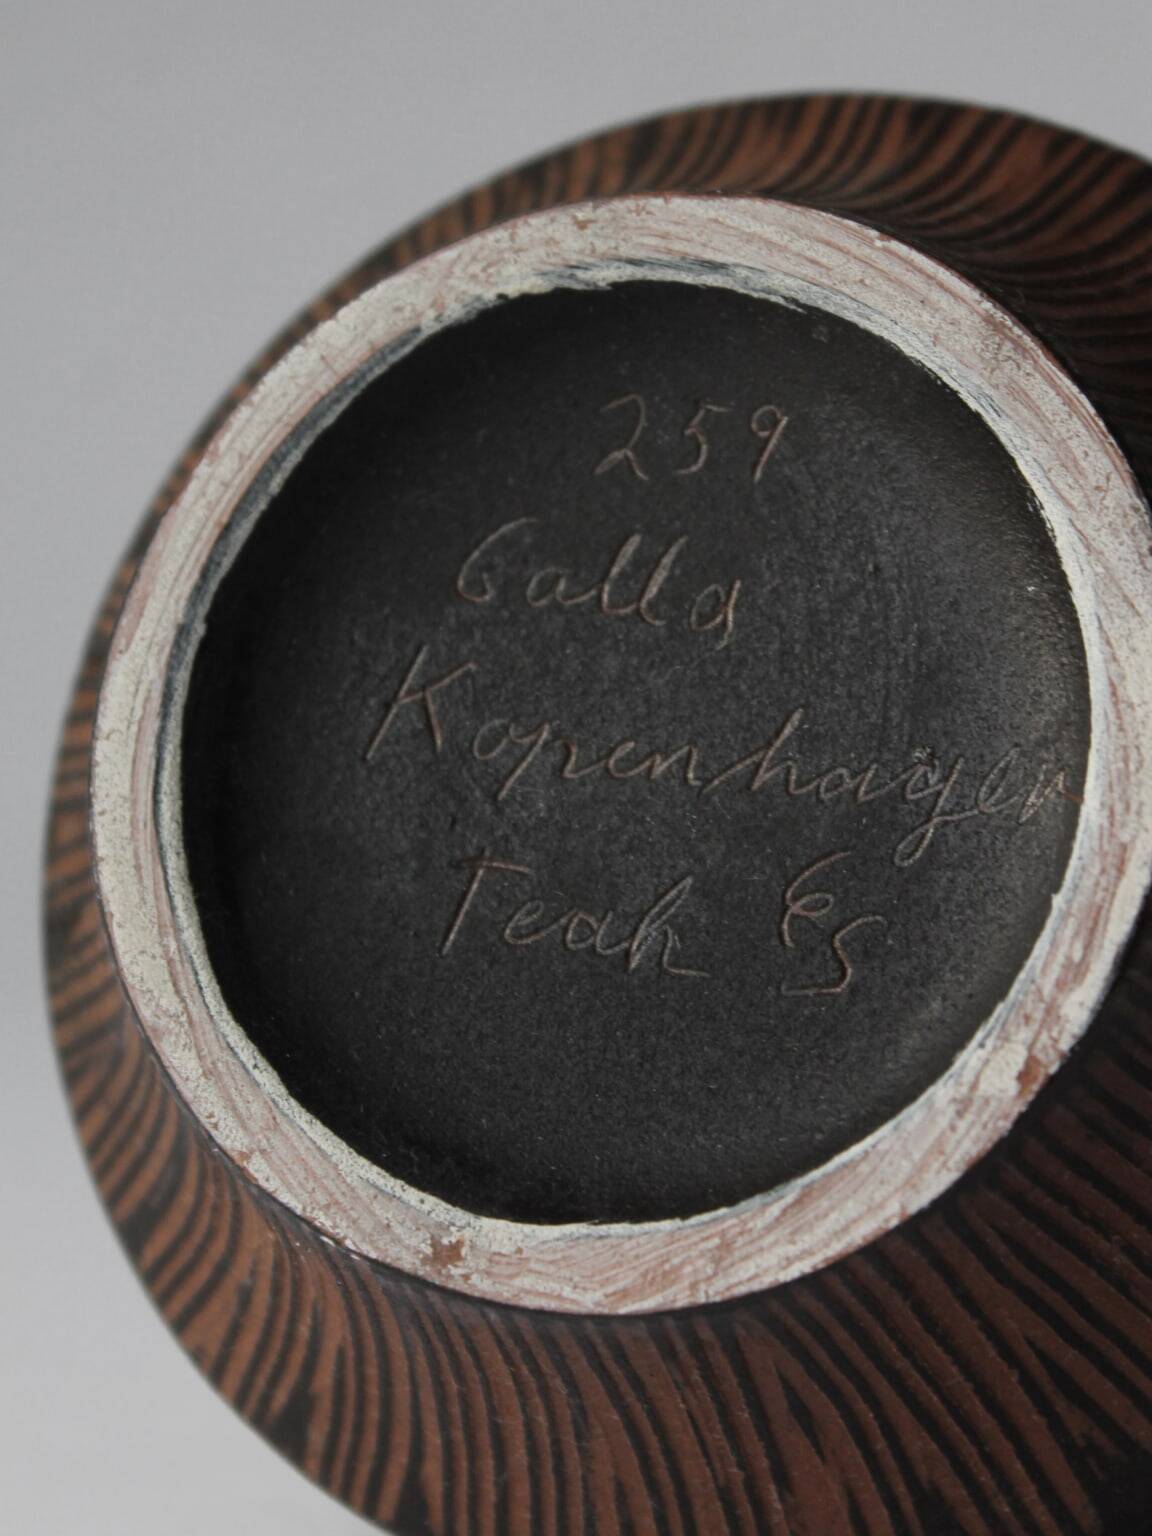 259
Calla
Kopenhagen
Teak ES